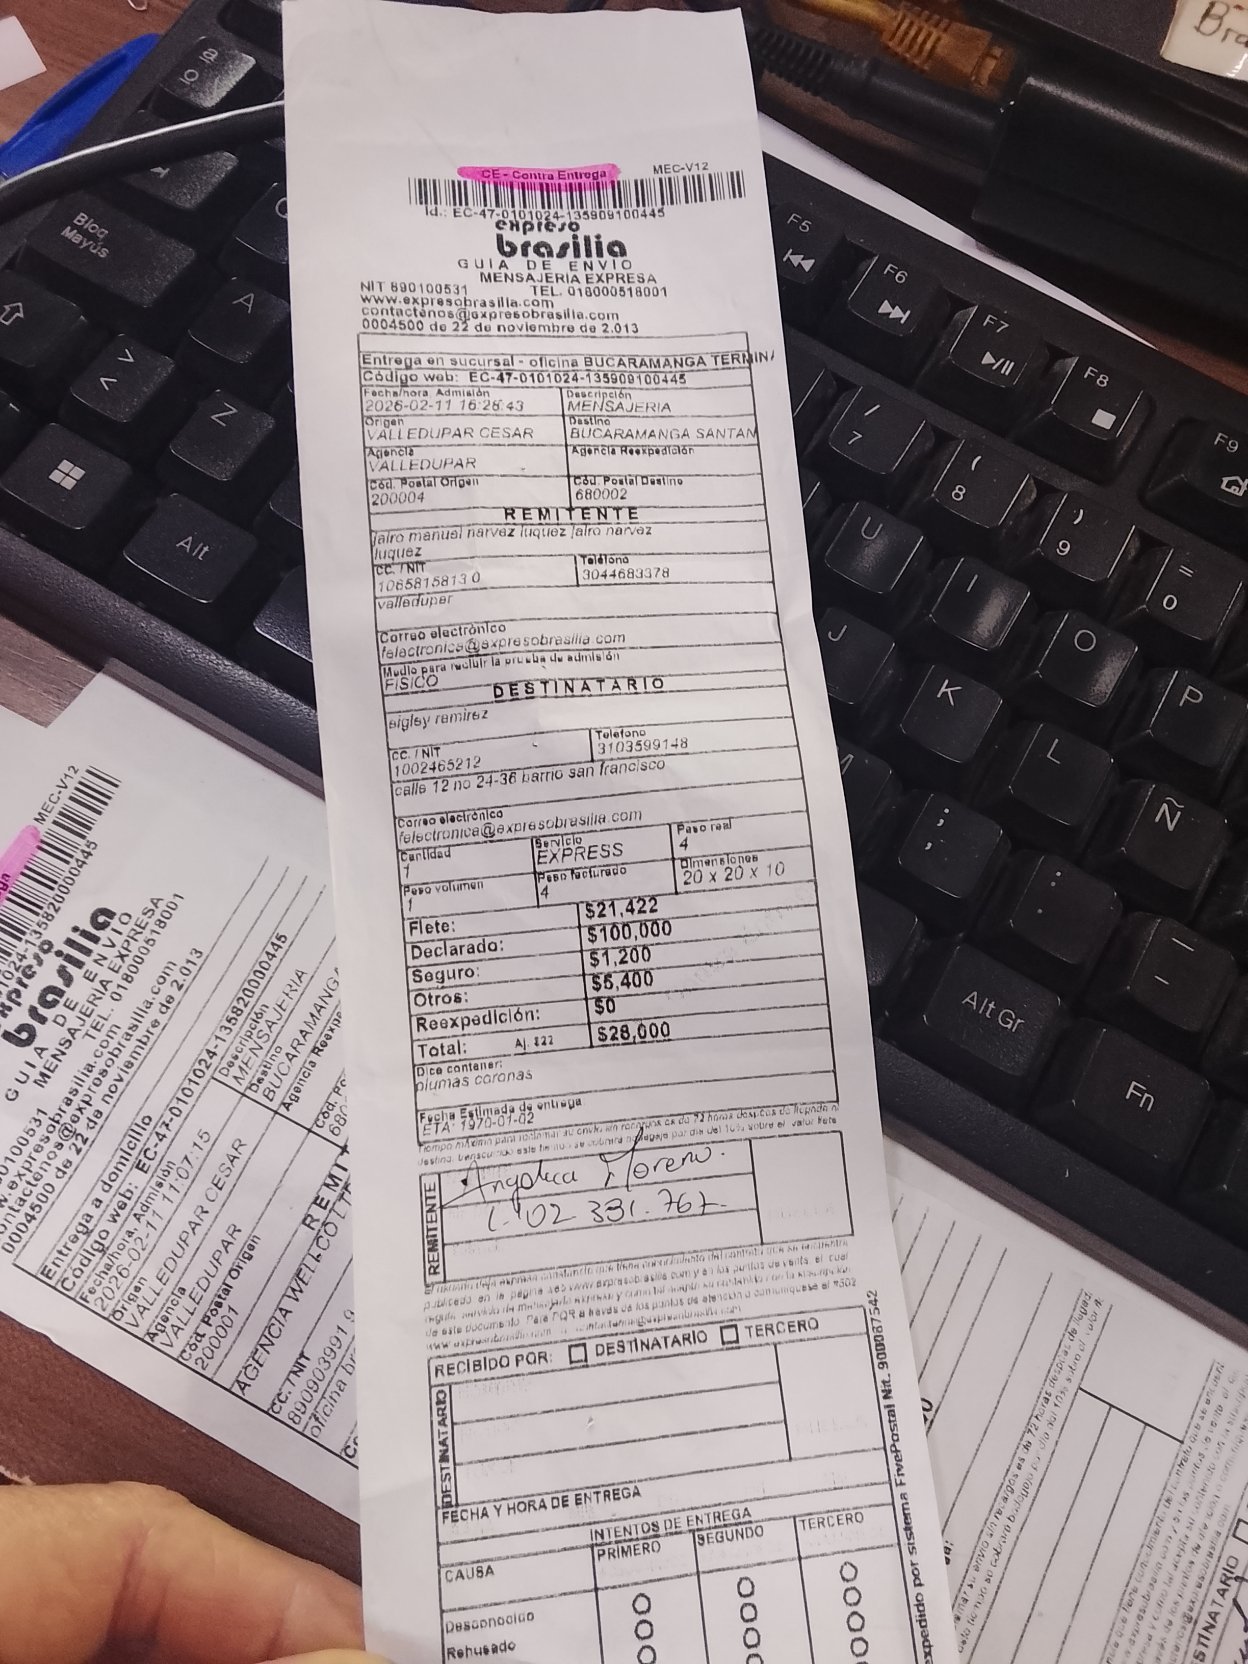 CE - Contra Entrega
MEC-V12
Id.: EC-47-0101024-135909100445
expreso
brasilia
GUIA DE ENVIO
MENSAJERIA EXPRESA
NIT 890100531 TEL. 018000518001
www.expresobrasilia.com
contactenos@expresobrasilia.com
0004500 de 22 de noviembre de 2.013
Entrega en sucursal - oficina BUCARAMANGA TERMINA
Código web: EC-47-0101024-135909100445
Fecha/hora. Admisión Descripción
2026-02-11 16:26:43 MENSAJERIA
Origen Destino
VALLEDUPAR CESAR BUCARAMANGA SANTAN
Agencia Agencia Reexpedición
VALLEDUPAR
Cód. Postal Origen Cód. Postal Destino
200004 680002
REMITENTE
jairo manuel narvez luquez jairo narvez
luquez
CC. / NIT Teléfono
1065815813 0 3044683378
valledupar
Correo electrónico
felectronica@expresobrasilia.com
Medio para recibir la prueba de admisión
FISICO
DESTINATARIO
sigley ramirez
CC. / NIT Telefono
1002465212 3103599148
calle 12 no 24-36 barrio san francisco
Correo electrónico
felectronica@expresobrasilia.com
Cantidad Servicio Peso real
1 EXPRESS 4
Peso volumen Peso facturado Dimensiones
1 4 20 x 20 x 10
Flete: $21,422
Declarado: $100,000
Seguro: $1,200
Otros: $5,400
Reexpedición: $0
Total: Aj. $22 $28,000
Dice contener:
plumas coronas
Fecha Estimada de entrega
ETA: 1970-01-02
Tiempo máximo para reclamar su envío sin recargos es de 72 horas después de llegada al
REMITENTE
Angelica Moreno.
1.102.381.767.
RECIBIDO POR: DESTINATARIO TERCERO
DESTINATARIO
FECHA Y HORA DE ENTREGA
INTENTOS DE ENTREGA
CAUSA PRIMERO SEGUNDO TERCERO
Desconocido
Rehusado
expedido por sistema FivePostal Nit. 900087542
MEC-V12
1024-135820000445
expreso
brasilia
GUIA DE ENVIO
MENSAJERIA EXPRESA
TEL. 018000518001
0004500 de 22 de noviembre de 2.013
Entrega a domicilio
Código web: EC-47-0101024-135820000445
Fecha/hora. Admisión Descripción
2026-02-11 11:07:15 MENSAJERIA
Origen Destino
VALLEDUPAR CESAR BUCARAMANGA
Agencia Agencia Reexpe
VALLEDUPAR
Cód. Postal Origen
200001
REMI
AGENCIA WELLCO LT
CC. / NIT
890903991 9
Bloq
Mayús
A
Z
Alt
F5
F6
F7
F8
F9
/
7
(
8
)
9
=
0
U
I
O
P
J
K
L
Ñ
M
;
,
:
.
_
-
Alt Gr
Fn